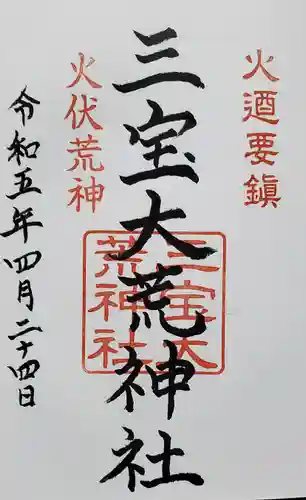 火迺要鎮
三宝大荒神社
三宝大
荒神社
火伏荒神
令和五年四月二十四日